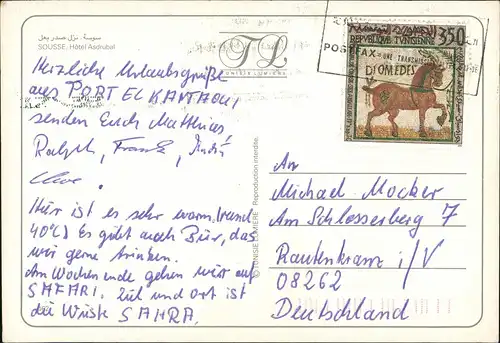 سوسة . نزل صدر بعل
SOUSSE. Hôtel Asdrubal
TL
TUNISIE LUMIERE
REPUBLIQUE TUNISIENNE
350
POSTFAX
UNE TRANSMIS
DIOMEDES
Herzliche Urlaubsgrüße
aus PORT EL KANTAOUI
senden Euch Matthias,
Ralph, Frank, André
Uwe.
Hier ist es sehr warm (rund
40°C) Es gibt auch Bier, das
wir gerne trinken.
Am Wochenende gehen wir auf
SAFARI. Ziel und Ort ist
die Wüste SAHRA.
© TUNISIE LUMIERE Reproduction interdite.
An
Michael Mocker
Am Schlosserberg 7
Rautenkranz i/V
08262
Deutschland